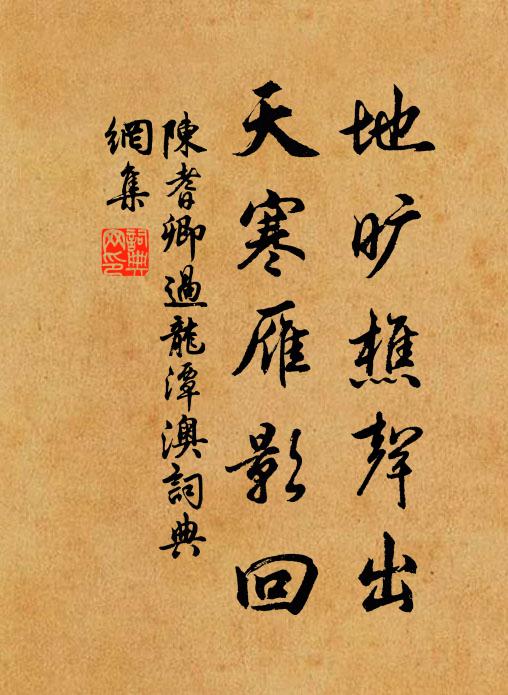 地旷樵聲出
天寒雁影回
陳耆卿過龍潭澳詞典
網集
詞典
网印